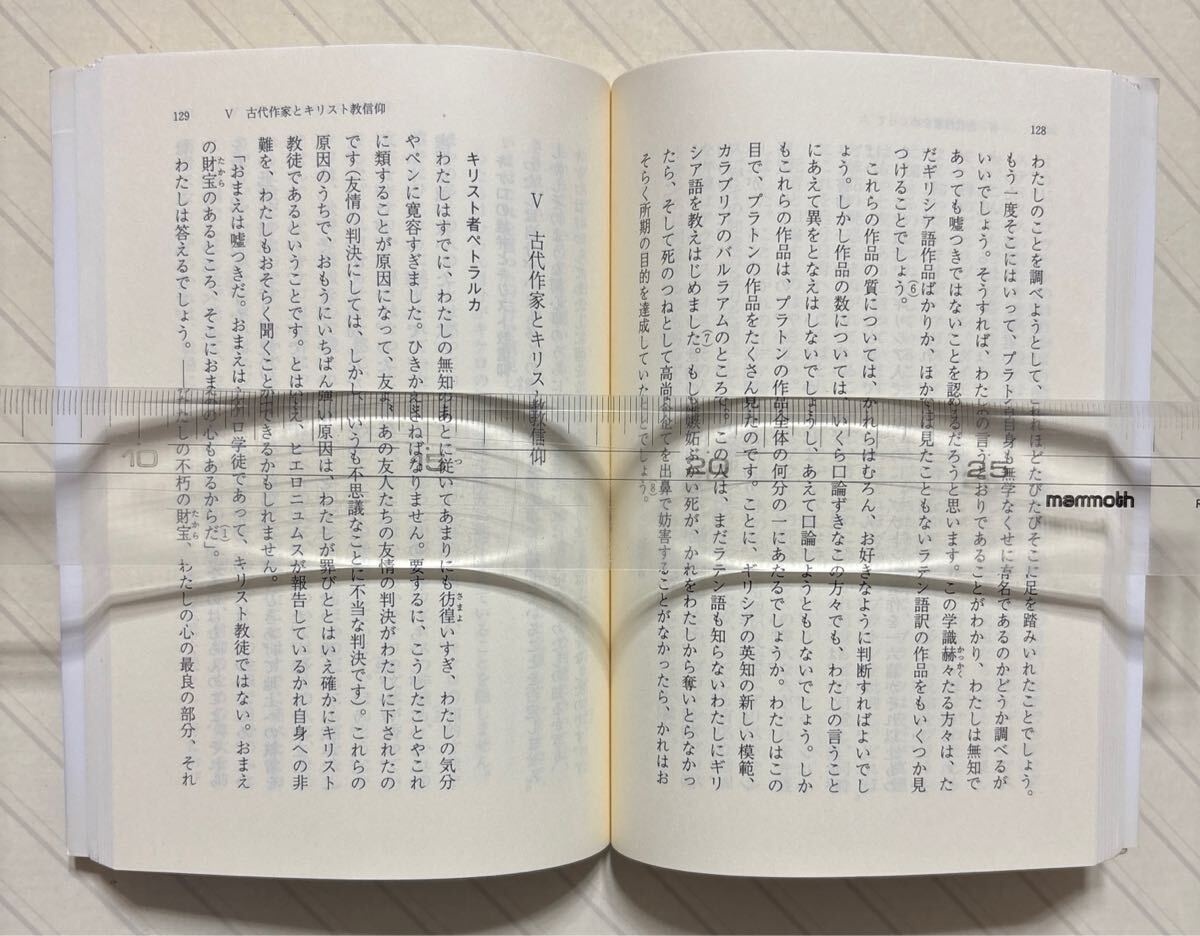 128
わたしのことを調べようとして、これほどたびたびそこに足を踏みいれたことでしょう。
もう一度そこにはいって、プラトン自身も無学なくせに有名であるのかどうか調べるが
いいでしょう。そうすれば、わたしの言うとおりであることがわかり、わたしは無知で
あっても嘘つきではないことを認めるだろうと思います。この学識赫々たる方々は、た
だギリシア語作品ばかりか、ほかでは見たこともないラテン語訳の作品をもいくつか見
つけることでしょう。(6)
これらの作品の質については、かれらはむろん、お好きなように判断すればよいでし
ょう。しかし作品の数については、いくら口論ずきなこの方々でも、わたしの言うこと
にあえて異をとなえはしないでしょうし、あえて口論しようともしないでしょう。しか
もこれらの作品は、プラトンの作品全体の何分の一にあたるでしょうか。わたしはこの
目で、プラトンの作品をたくさん見たのです。ことに、ギリシアの英知の新しい模範、
カラブリアのバルラアムのところで。この人は、まだラテン語も知らないわたしにギリ
シア語を教えはじめました。(7)もし嫉妬ぶかい死が、かれをわたしから奪いとらなかっ
たら、そして死のつねとして高尚な企てを出鼻で妨害することがなかったら、かれはお
そらく所期の目的を達成していたことでしょう。(8)
129 V 古代作家とキリスト教信仰
V 古代作家とキリスト教信仰
キリスト者ペトラルカ
わたしはすでに、わたしの無知のあとに従いてあまりにも彷徨いすぎ、わたしの気分
やペンに寛容すぎました。ひきかえさねばなりません。要するに、こうしたことやこれ
に類することが原因になって、友よ、あの友人たちの友情の判決がわたしに下されたの
です(友情の判決にしては、しかし、いうも不思議なことに不当な判決です)。これらの
原因のうちで、おもうにいちばん強い原因は、わたしが罪びととはいえ確かにキリスト
教徒であるということです。とはいえ、ヒエロニュムスが報告しているかれ自身への非
難を、わたしもおそらく聞くことができるかもしれません。
「おまえは嘘つきだ。おまえはキケロ学徒であって、キリスト教徒ではない。おまえ
の財宝のあるところ、そこにおまえの心もあるからだ」。(1)
わたしは答えるでしょう。――わたしの不朽の財宝、わたしの心の最良の部分、それ
10 15 20 25
mammoth